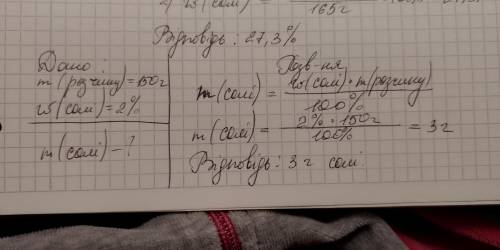 165г
Відповідь: 27,3%
Дано:
m(розчину)=150г
w(солі)=2%
m(солі)-?
Розв-ня
m(солі) = w(солі)·m(розчину)
100%
m(солі) = 2%·150г
100%
= 3г
Відповідь: 3г солі.